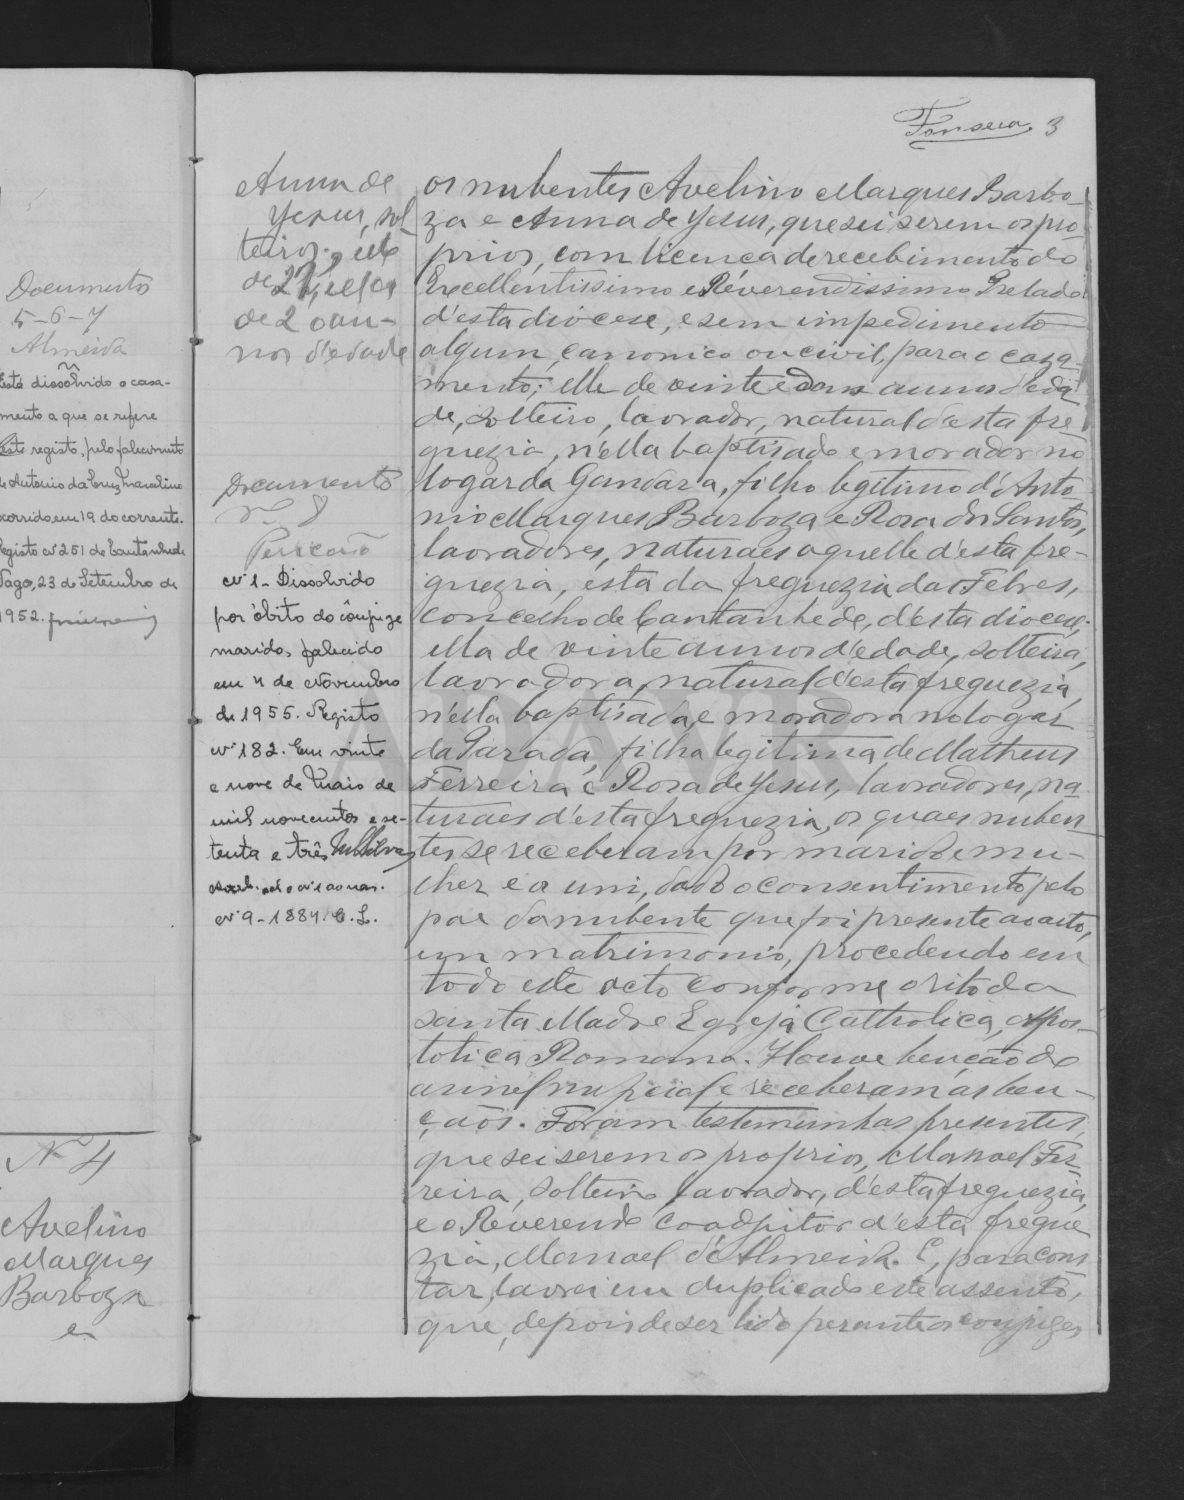 Documento
5-6-7
Almeida
Está dissolvido o casa-
mento a que se refere
este registo, pelo falecimento
de Antonio da Cruz Marcelino
ocorrido em 19 do corrente.
Registo nº 251 de Cantanhede
Vagos, 23 de Setembro de
1952.
Nº 4
Avelino
Marques
Barboza
e
Fonseca. 3
Anna de
Jesus, sol-
teiros; elle
de 22, ella
de 20 an-
nos d'edade
Documento
nº 8
nº 1 - Dissolvido
por óbito do cônjuge
marido, falecido
em 4 de Novembro
de 1955. Registo
nº 182. Em vinte
e nove de Maio de
mil novecentos e se-
tenta e três
nº 9-1884. C. L.
os nubentes Avelino Marques Barbo-
za e Anna de Jesus, que sei serem os pro-
prios, com licença de recebimento do
Excellentissimo e Reverendissimo Prelado
d'esta diocese, e sem impedimento
algum, canonico ou civil, para o casa-
mento; elle de vinte e dous annos d'eda-
de, solteiro, lavrador, natural d'esta fre-
guezia, n'ella baptisado e morador no
logar da Gandara, filho legitimo d'Anto-
nio Marques Barboza e Rosa dos Santos,
lavradores, naturaes aquelle d'esta fre-
guezia, esta da freguezia das Febres,
concelho de Cantanhede, d'esta diocese;
ella de vinte annos d'edade, solteira,
lavradora, natural d'esta freguezia,
n'ella baptisada, e moradora no logar
da Parada, filha legitima de Matheus
Ferreira e Rosa de Jesus, lavradores, na-
turaes d'esta freguezia, os quaes nuben-
tes se receberam por marido e mu-
lher e o uni, dado o consentimento pelo
pae da nubente que foi presente ao acto,
em matrimonio, procedendo em
todo este acto conforme o rito da
Santa Madre Egreja Catholica, Apos-
tolica Romana. Houve benção do
annel nupcial e receberam as ben-
çãos. Foram testemunhas presentes,
que sei serem os proprios, Manoel Fer-
reira, solteiro, lavrador, d'esta freguezia,
e o Reverendo coadjutor d'esta fregue-
zia, Manoel d'Almeida. E, para cons-
tar, lavrei em duplicado este assento,
que, depois de ser lido perante os conjuges